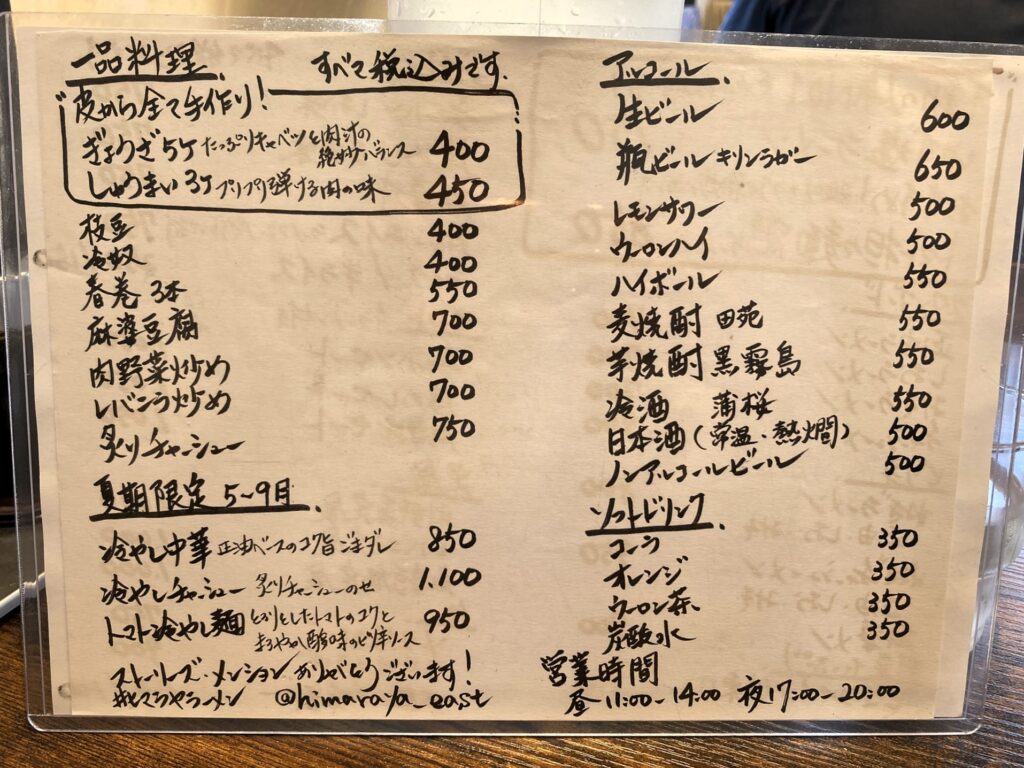 一品料理 すべて税込みです.
皮から全て手作り!
ぎょうざ5ケ たっぷりキャベツと肉汁の絶妙バランス 400
しゅうまい3ケ プリプリ弾ける肉の味 450
枝豆 400
冷奴 400
春巻3本 550
麻婆豆腐 700
肉野菜炒め 700
レバニラ炒め 700
炙りチャーシュー 750
夏期限定 5~9月.
冷やし中華 正油ベースのコク旨ごまダレ 850
冷やしチャーシュー 炙りチャーシューのせ 1.100
トマト冷やし麺 とろりとしたトマトのコクとまろやか酸味のピリ辛ソース 950
ストーリーズ・メンションありがとうございます!
ラーメン @himaraya_east
アルコール.
生ビール 600
瓶ビール キリンラガー 650
レモンサワー 500
ウーロンハイ 500
ハイボール 550
麦焼酎 田苑 550
芋焼酎 黒霧島 550
冷酒 蒲桜 550
日本酒(常温・熱燗) 500
ノンアルコールビール 500
ソフトドリンク.
コーラ 350
オレンジ 350
ウーロン茶 350
炭酸水 350
営業時間
昼11:00-14:00 夜17:00-20:00